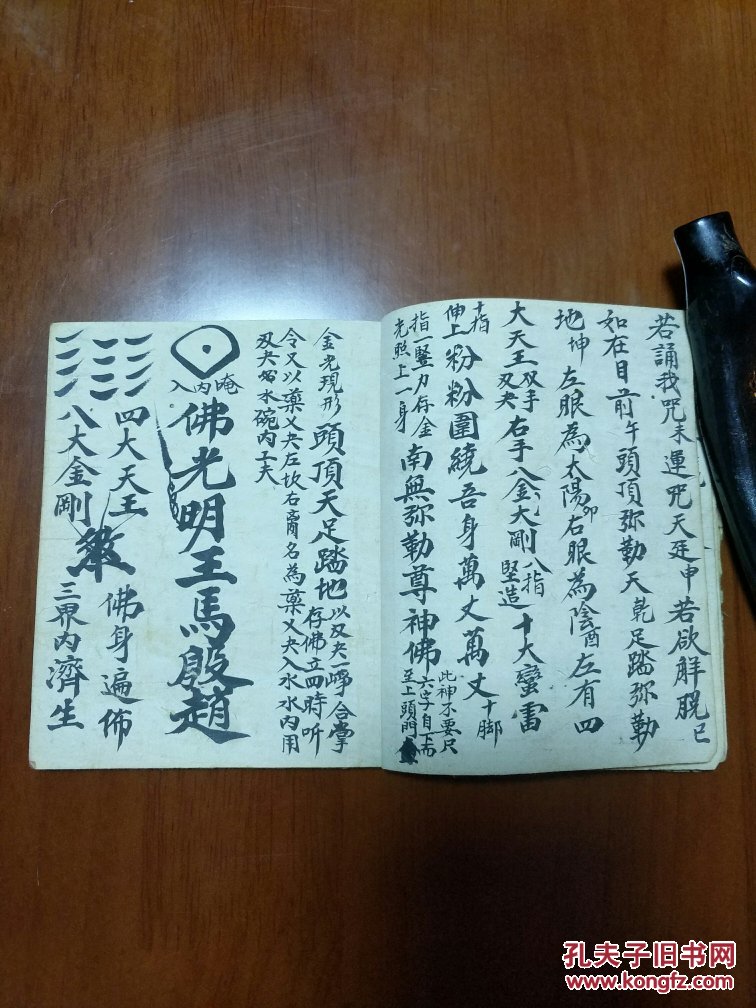 若誦我咒未運咒天延申若欲解脫巳
如在目前午頭頂弥勒天乾足踏弥勒
地坤左眼為太陽卯右眼為陰酉左有四
大天王双手叉夬右手八金大剛八指堅造十大蠻雷
十指伸上粉粉圍繞吾身萬丈萬丈十脚
指一竪刀存金光照上一身南無弥勒尊神佛此神不要尺六字自下而至上頭門
金光現形頭頂天足踏地以叉夬一嘑合掌存佛立四時听
令又以藥乂夬左坎右离名為藥乂夬入水水内用
叉夬公水碗内工夫
唵内入佛光明王馬殷趙
四大天王佛身遍佈
八大金剛三界内濟生
孔夫子旧书网
www.kongfz.com